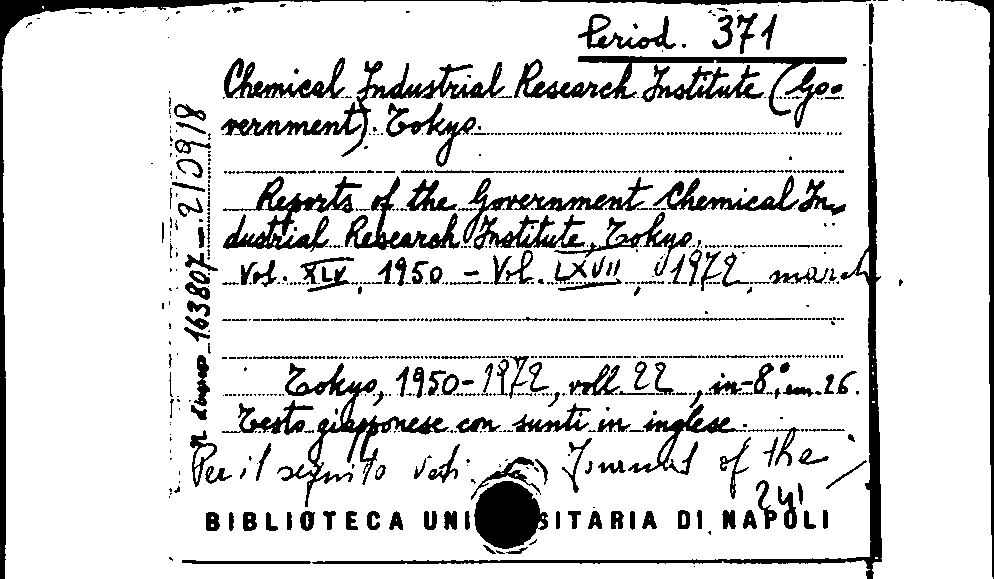 Period. 371
Chemical Industrial Research Institute (Go=
vernment). Tokyo.
Reports of the Government Chemical In=
dustrial Research Institute, Tokyo.
Vol. XLV, 1950 - Vol. LXVII, 1972, march.
Tokyo, 1950-1972, voll. 22, in-8°, cm. 26.
Testo giapponese con sunti in inglese.
Per il seguito vedi Journal of the
241
BIBLIOTECA UNI SITARIA DI NAPOLI
n. d'ingresso 163807 - 210918